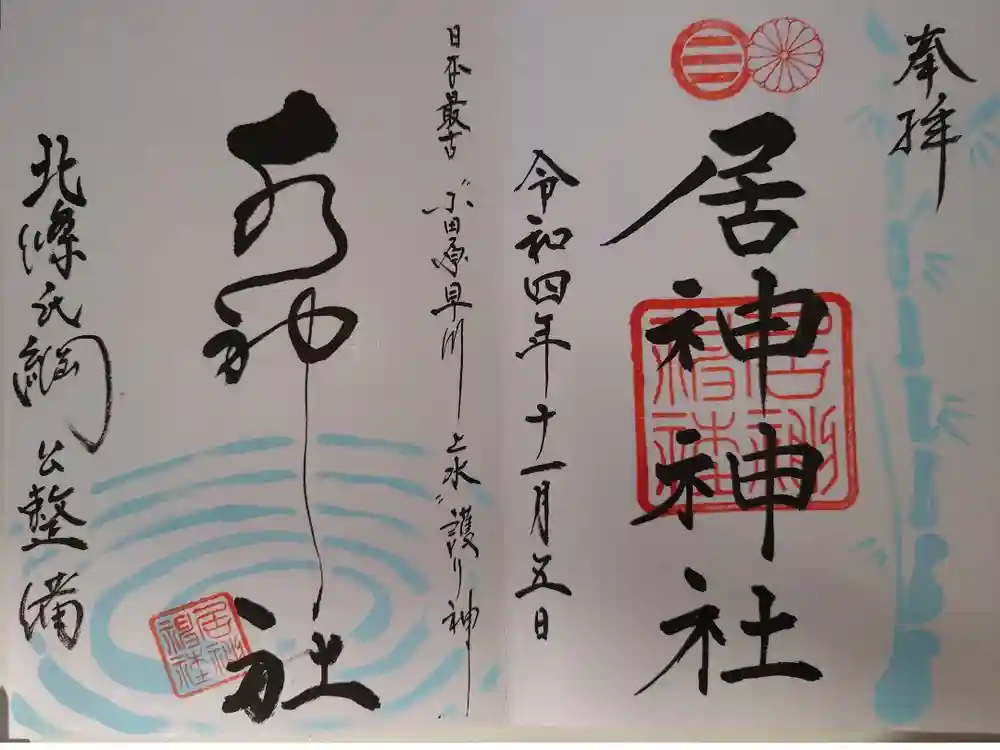 奉拝
居神神社
令和四年十一月五日
日本最古 小田原早川上水護り神
水神社
北條氏綱公整備
居神神社